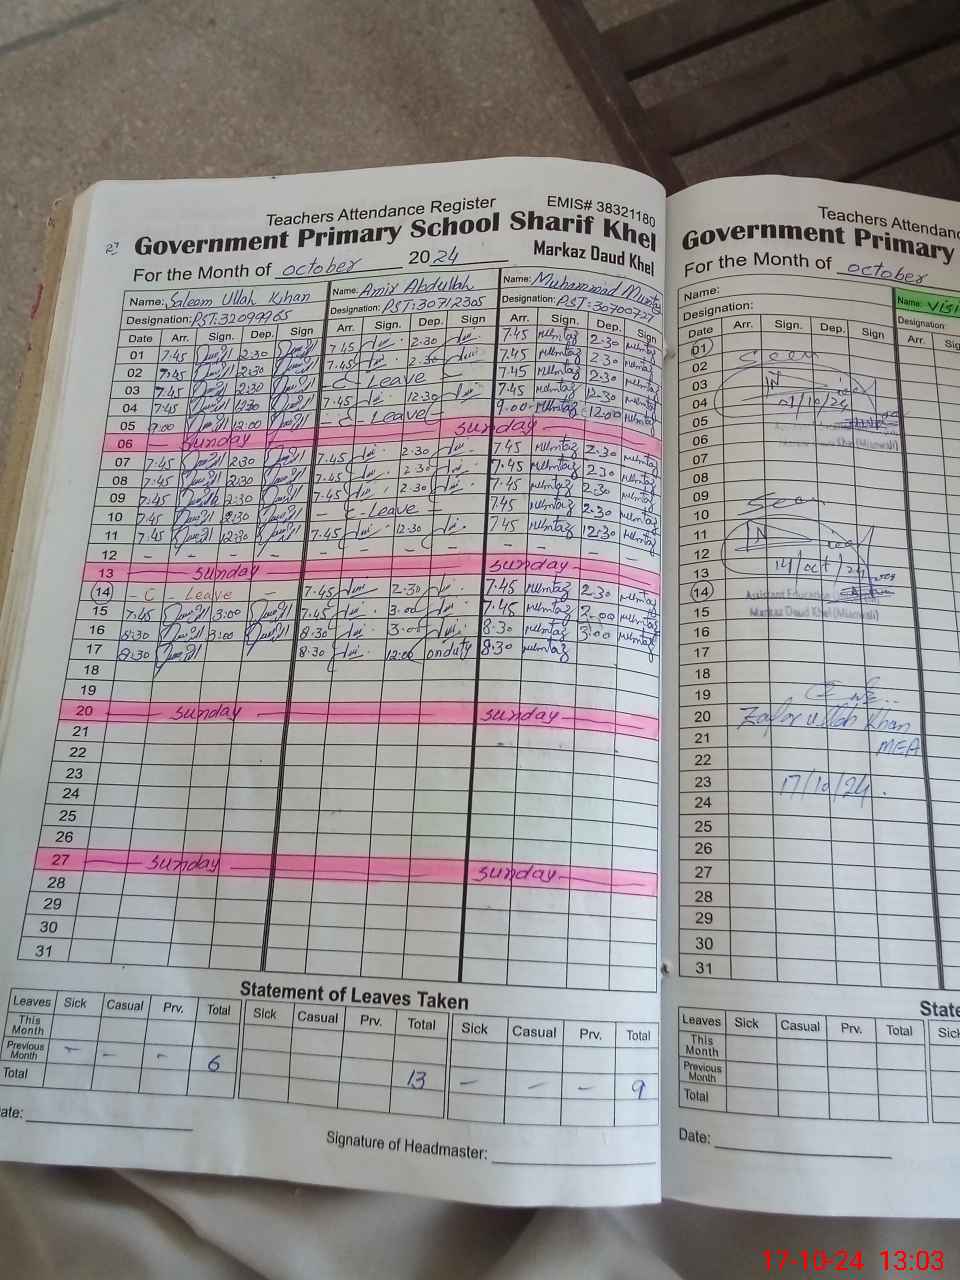 Teachers Attendance Register
EMIS# 38321180
Government Primary School Sharif Khel
For the Month of October 2024
Markaz Daud Khel
Name: Saleem Ullah Khan Name: Amir Abdullah Name: Muhammad
Designation: PST:32099965 Designation: PST:30712305 Designation: PST:
Date Arr. Sign. Dep. Sign Arr. Sign. Dep. Sign Arr. Sign. Dep. Sign
01 7.45 2:30 7.45 2.30 7.45 Mumtaz 2.30 Mumtaz
02 7.45 2:30 7.45 2.30 7.45 Mumtaz 2.30 Mumtaz
03 7.45 2:30 - C - Leave - 7.45 Mumtaz 2.30 Mumtaz
04 7.45 12:30 7.45 12.30 7.45 Mumtaz 12.30 Mumtaz
05 9.00 12:00 - C - Leave - 9.00 Mumtaz 12.00 Mumtaz
06 Sunday Sunday
07 7.45 2:30 7.45 2.30 7.45 Mumtaz 2.30 Mumtaz
08 7.45 2:30 7.45 2.30 7.45 Mumtaz 2.30 Mumtaz
09 7.45 2:30 7.45 2.30 7.45 Mumtaz 2.30 Mumtaz
10 7.45 2:30 - C - Leave - 7.45 Mumtaz 2.30 Mumtaz
11 7.45 12:30 7.45 12.30 7.45 Mumtaz 12.30 Mumtaz
12 - - - - - - - - - - - -
13 Sunday Sunday
14 - C - Leave - 7.45 2.30 7.45 Mumtaz 2.30 Mumtaz
15 7.45 3:00 7.45 3.00 7.45 Mumtaz Mumtaz
16 8:30 3:00 8.30 3.00 8.30 Mumtaz 3.00 Mumtaz
17 8:30 8.30 12:00 on duty 8.30 Mumtaz
18
19
20 Sunday Sunday
21
22
23
24
25
26
27 Sunday Sunday
28
29
30
31
Statement of Leaves Taken
Leaves Sick Casual Prv. Total Sick Casual Prv. Total Sick Casual Prv. Total
This Month
Previous Month - - - 6 13 - - - 9
Total
ate:
Signature of Headmaster:
Teachers Attendanc
Government Primary
For the Month of October
Name: Name: Visi
Designation: Designation:
Date Arr. Sign. Dep. Sign Arr. Sig
01
02 Seen
03
04 01/10/24
05
06 Markaz Daud Khel (Mianwali)
07
08
09
10 Seen
11
12
13 14/oct/24
14 Assistant Education
15 Markaz Daud Khel (Mianwali)
16
17
18
19
20 Zafar Ullah Khan
21 MEA
22
23 17/10/24.
24
25
26
27
28
29
30
31
State
Leaves Sick Casual Prv. Total Sick
This Month
Previous Month
Total
Date:
17-10-24 13:03